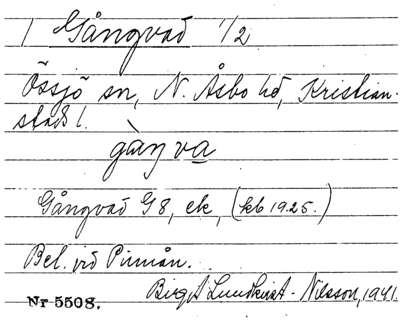 1 Gångvad 1/2
Össjö sn, N. Åsbo hd, Kristian-
stads l.
gàŋ va
Gångvad G8, ek, (kb 1925.)
Bel. vid Pinnån.
Birgit Lundkvist-Nilsson, 1941.
Nr 5508.